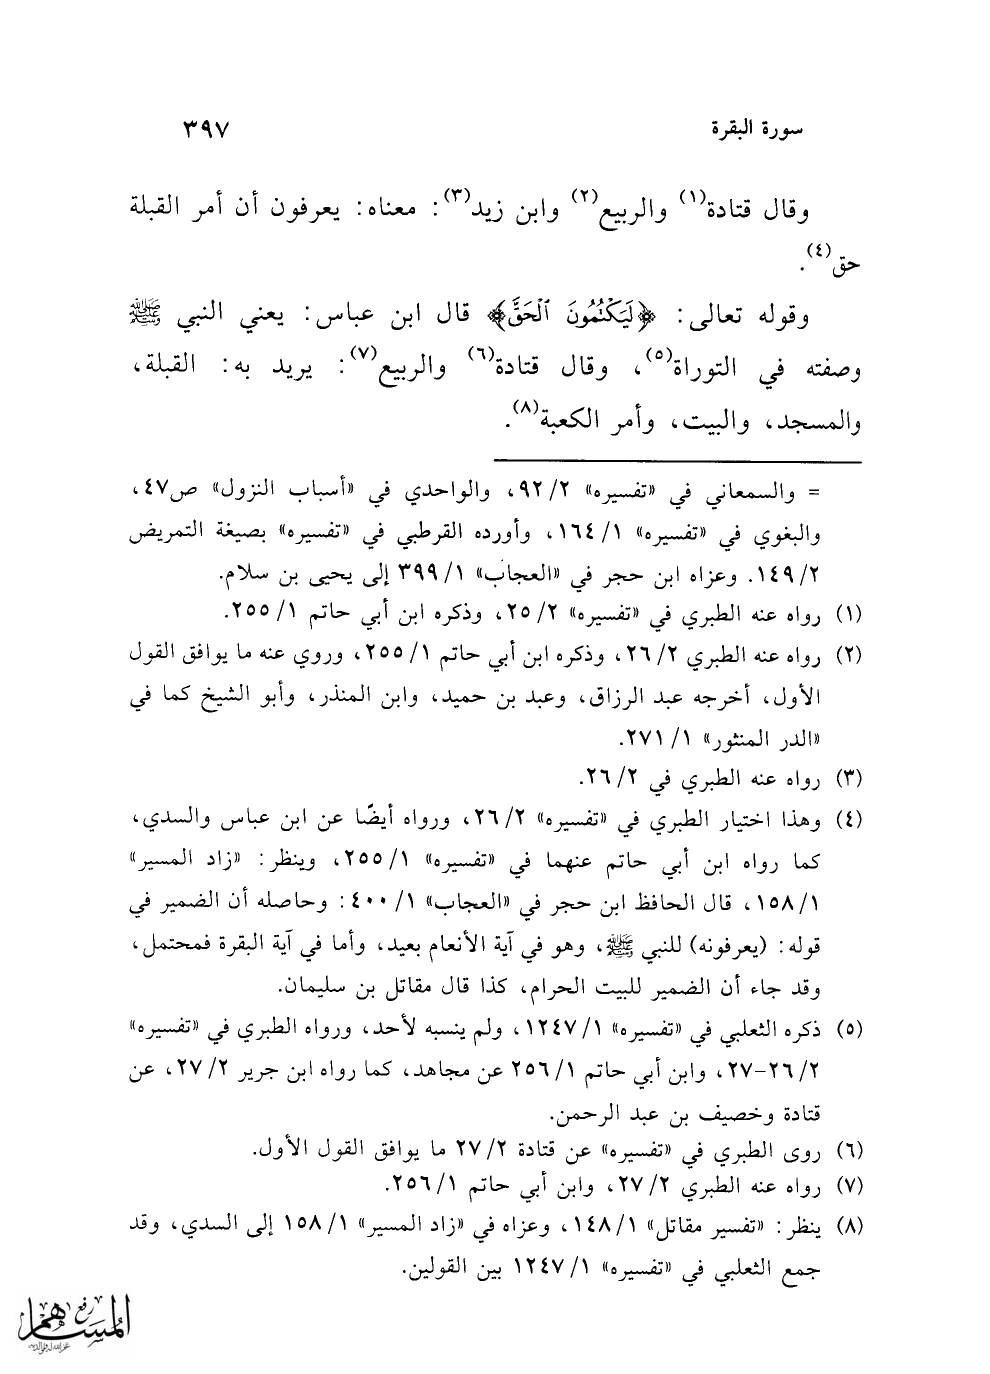 سورة البقرة ٣٩٧
وقال قتادة(١) والربيع(٢) وابن زيد(٣): معناه: يعرفون أن أمر القبلة
حق(٤).
وقوله تعالى: ﴿لَيَكْتُمُونَ ٱلْحَقَّ﴾ قال ابن عباس: يعني النبي ﷺ
وصفته في التوراة(٥)، وقال قتادة(٦) والربيع(٧): يريد به: القبلة،
والمسجد، والبيت، وأمر الكعبة(٨).
= والسمعاني في «تفسيره» ٢/ ٩٢، والواحدي في «أسباب النزول» ص٤٧،
والبغوي في «تفسيره» ١/ ١٦٤، وأورده القرطبي في «تفسيره» بصيغة التمريض
٢/ ١٤٩. وعزاه ابن حجر في «العجاب» ١/ ٣٩٩ إلى يحيى بن سلام.
(١) رواه عنه الطبري في «تفسيره» ٢/ ٢٥، وذكره ابن أبي حاتم ١/ ٢٥٥.
(٢) رواه عنه الطبري ٢/ ٢٦، وذكره ابن أبي حاتم ١/ ٢٥٥، وروي عنه ما يوافق القول
الأول، أخرجه عبد الرزاق، وعبد بن حميد، وابن المنذر، وأبو الشيخ كما في
«الدر المنثور» ١/ ٢٧١.
(٣) رواه عنه الطبري في ٢/ ٢٦.
(٤) وهذا اختيار الطبري في «تفسيره» ٢/ ٢٦، ورواه أيضًا عن ابن عباس والسدي،
كما رواه ابن أبي حاتم عنهما في «تفسيره» ١/ ٢٥٥، وينظر: «زاد المسير»
١/ ١٥٨، قال الحافظ ابن حجر في «العجاب» ١/ ٤٠٠: وحاصله أن الضمير في
قوله: (يعرفونه) للنبي ﷺ، وهو في آية الأنعام بعيد، وأما في آية البقرة فمحتمل،
وقد جاء أن الضمير للبيت الحرام، كذا قال مقاتل بن سليمان.
(٥) ذكره الثعلبي في «تفسيره» ١/ ١٢٤٧، ولم ينسبه لأحد، ورواه الطبري في «تفسيره»
٢/ ٢٦-٢٧، وابن أبي حاتم ١/ ٢٥٦ عن مجاهد، كما رواه ابن جرير ٢/ ٢٧، عن
قتادة وخصيف بن عبد الرحمن.
(٦) روى الطبري في «تفسيره» عن قتادة ٢/ ٢٧ ما يوافق القول الأول.
(٧) رواه عنه الطبري ٢/ ٢٧، وابن أبي حاتم ١/ ٢٥٦.
(٨) ينظر: «تفسير مقاتل» ١/ ١٤٨، وعزاه في «زاد المسير» ١/ ١٥٨ إلى السدي، وقد
جمع الثعلبي في «تفسيره» ١/ ١٢٤٧ بين القولين.
رفع